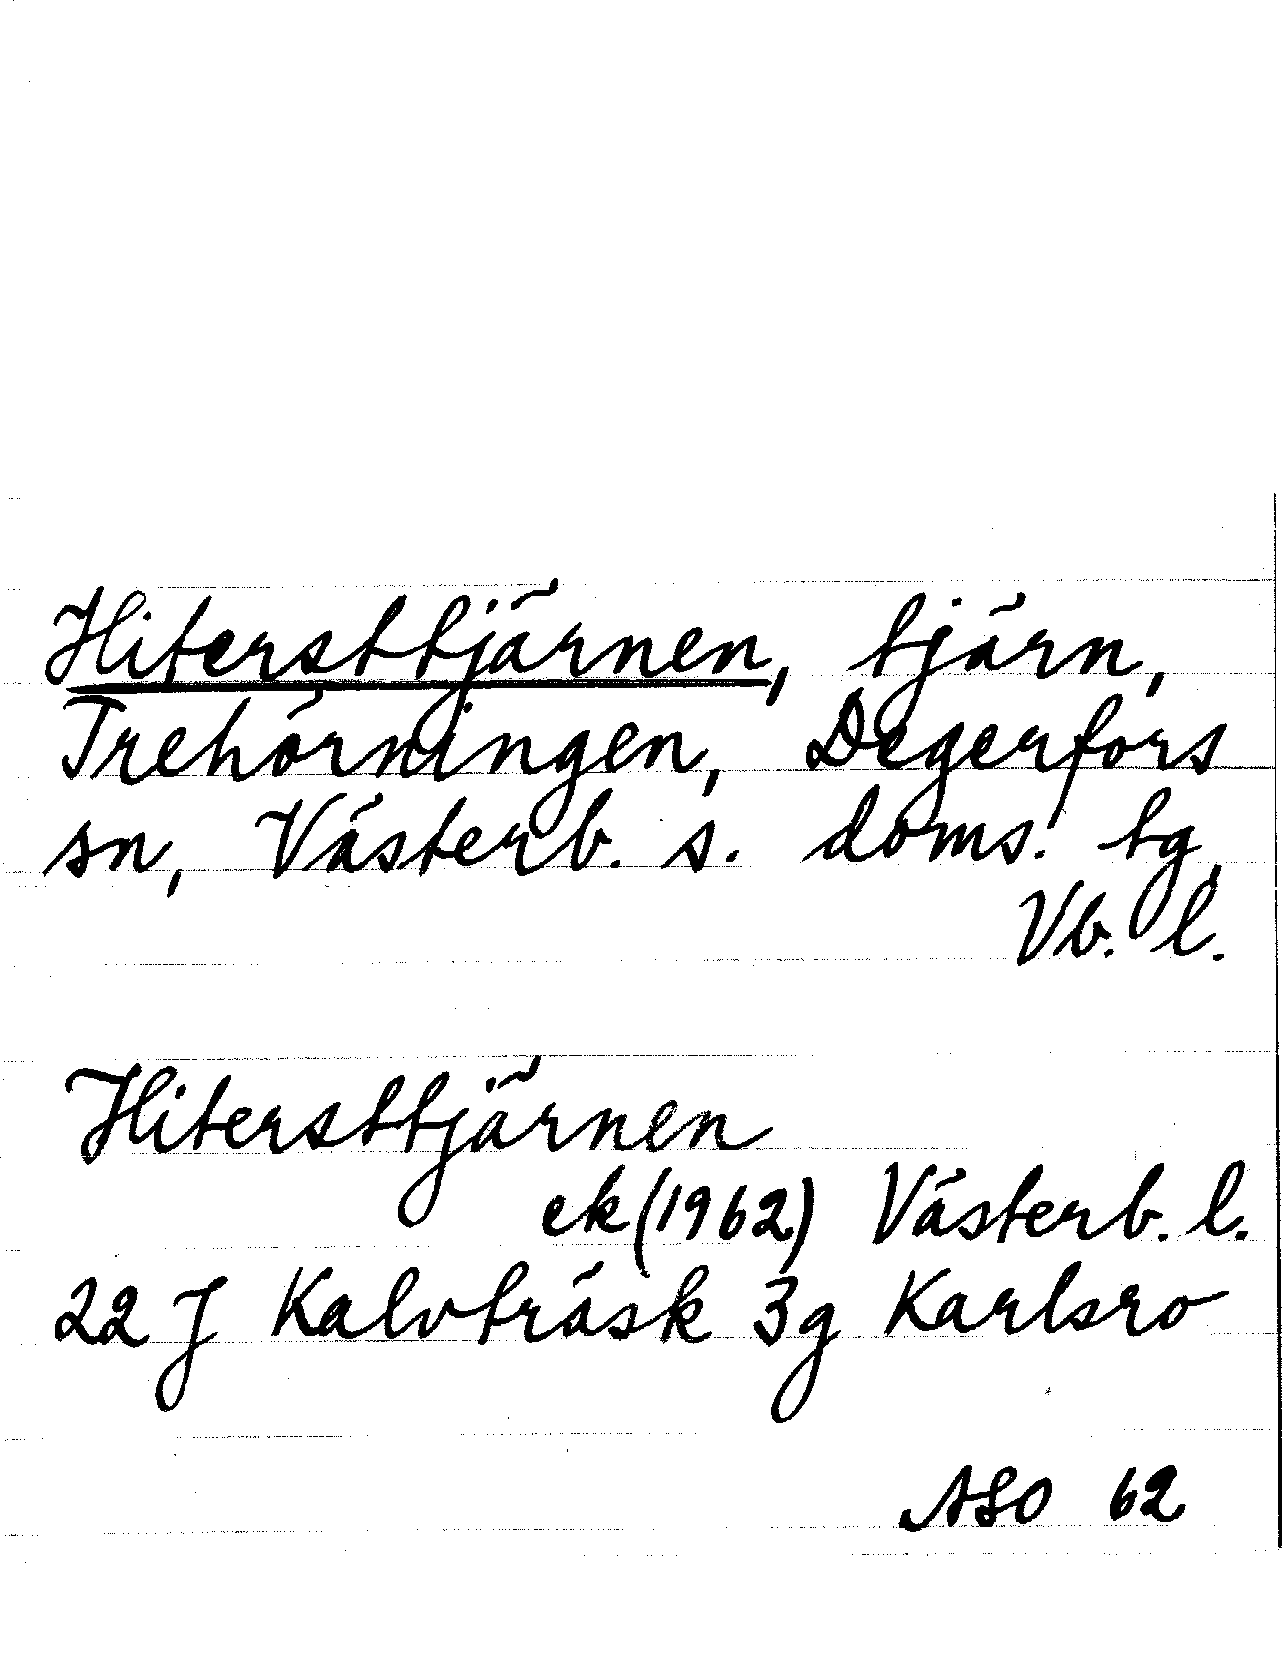 Hitersttjärnen, tjärn,
Trehörningen, Degerfors
sn, Västerb. s. doms. tg,
Vb. l.
Hitersttjärnen
ek (1962) Västerb. l.
22 J Kalvträsk 3g Karlsro
ASO 62